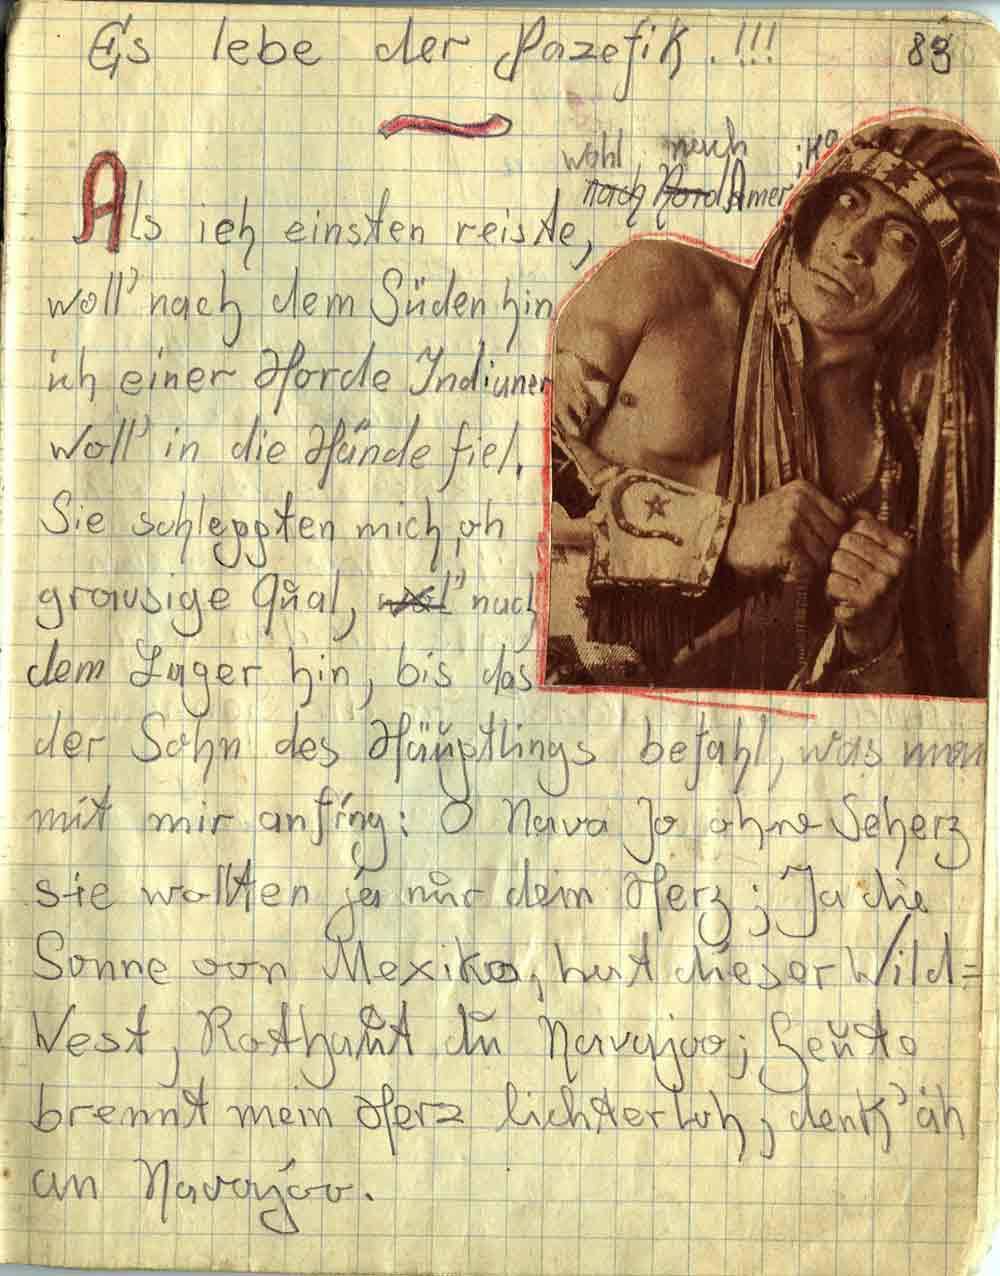 Es lebe der Pazefik.!!! 83
wohl nach
nach Nord Amerika
Als ich einsten reiste,
woll' nach dem Süden hin
ich einer Horde Indianer
woll' in die Hände fiel.
Sie schleppten mich, oh
grausige Qual, woll' nach
dem Lager hin, bis das
der Sohn des Häuptlings befahl, was man
mit mir anfing: O Nava Jo ohne Scherz
sie wollten ja nur dein Herz; Ja die
Sonne von Mexiko, hat dieser Wild=
West, Rothaut du Navajoo; Heute
brennt mein Herz lichterloh, denk' äh
an Navajoo.